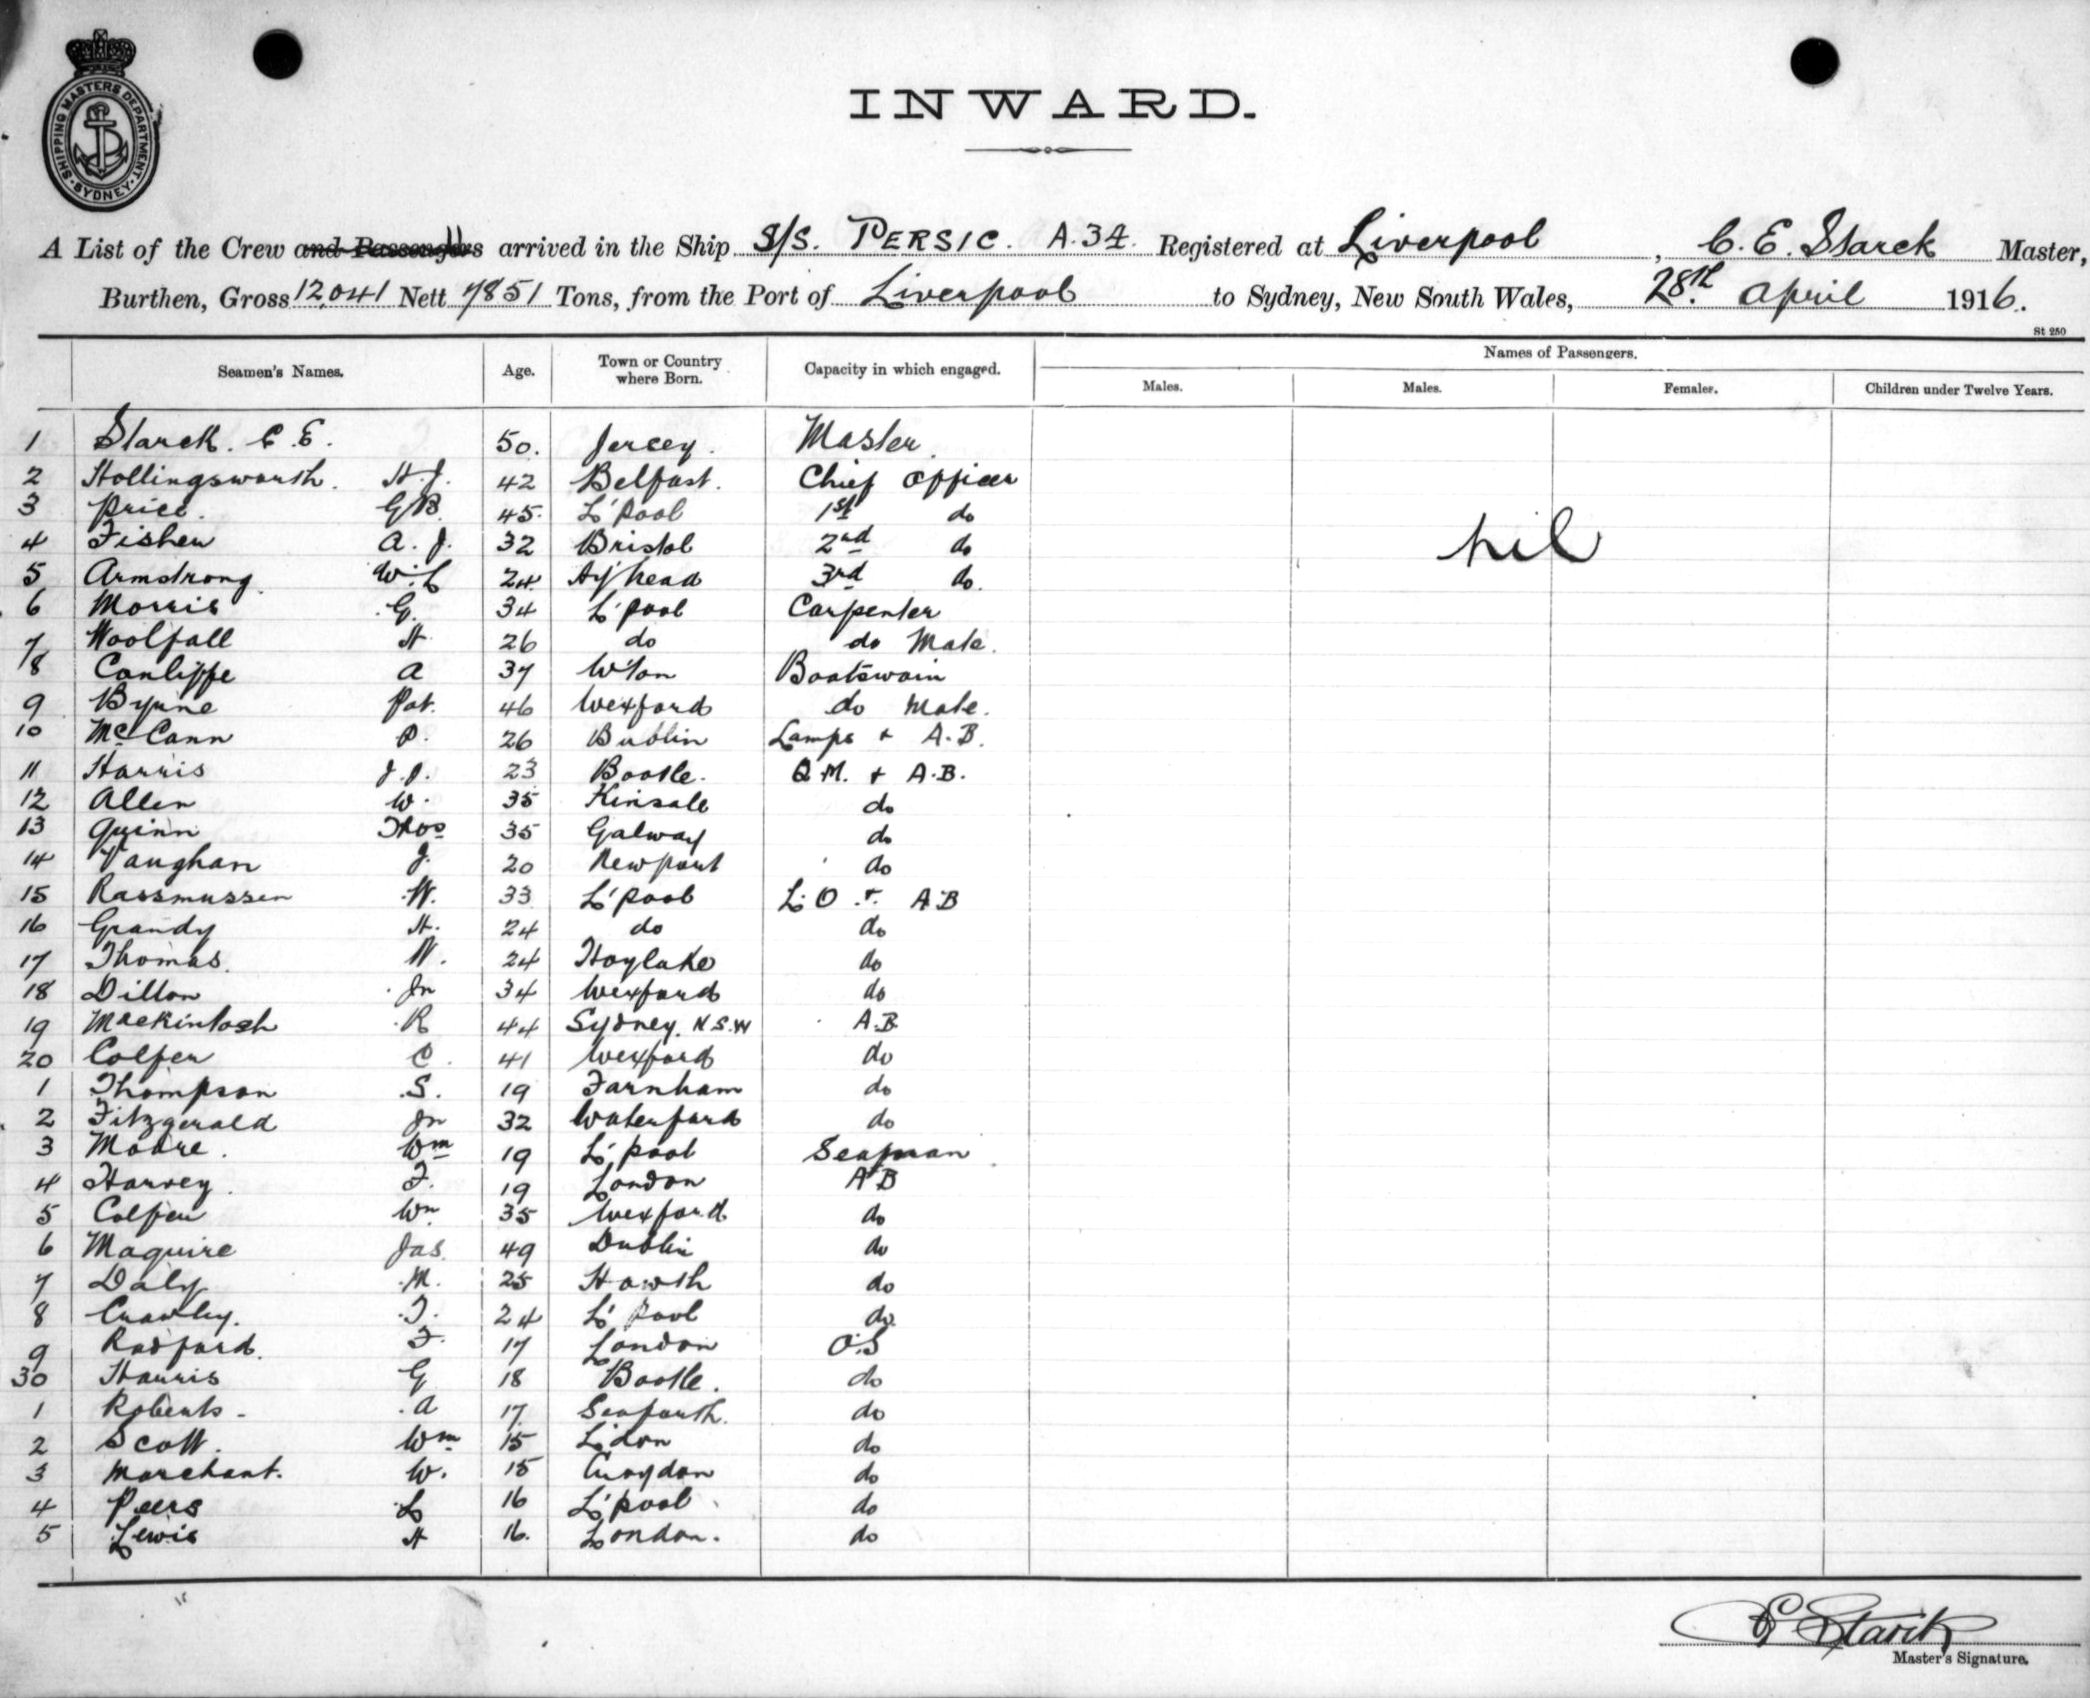 SHIPPING MASTERS DEPARTMENT
SYDNEY
INWARD.
A List of the Crew and Passengers arrived in the Ship S/S. PERSIC. A.34. Registered at Liverpool, C. E. Starck Master,
Burthen, Gross 12,041 Nett 7851 Tons, from the Port of Liverpool to Sydney, New South Wales, 28th April 1916.
St 250
Seamen's Names. Age. Town or Country where Born. Capacity in which engaged. Names of Passengers.
Males. Males. Females. Children under Twelve Years.
1 Starck. C. E. 50. Jersey. Master.
2 Hollingsworth. H.J. 42 Belfast. Chief Officer
3 Price. G.B. 45. L'pool 1st do
4 Fisher A. J. 32 Bristol 2nd do
nil
5 Armstrong. W. 24 H'head 3rd do.
6 Morris G. 34 L'pool Carpenter
7 Woolfall H 26 do do Mate.
8 Canliffe A 37 W'ton Boatswain
9 Byrne Pat. 46 Wexford do Mate.
10 McCann P. 26 Dublin Lamps + A.B.
11 Harris J.P. 23 Bootle. Q.M. + A.B.
12 Allen W. 35 Kinsale do
13 Quinn Thos 35 Galway do
14 Vaughan J. 20 Newport do
15 Rassmussen W. 33 L'pool L.O. + AB
16 Grandy H. 24 do do
17 Thomas. W. 24 Hoylake do
18 Dillon Jn 34 Wexford do
19 Mackintosh R 44 Sydney. N.S.W A.B.
20 Colfer C. 41 Wexford do
1 Thompson S. 19 Farnham do
2 Fitzgerald Jn 32 Waterford do
3 Moore. Wm 19 L'pool Seaman
4 Harvey. F. 19 London AB
5 Colfer Wm 35 Wexford do
6 Maguire Jas. 49 Dublin do
7 Daly M. 25 Howth do
8 Crawley. T. 24 L'pool do
9 Radford. F. 17 London O.S
30 Harris G 18 Bootle. do
1 Roberts. A 17. Seaforth. do
2 Scott. Wm 15 L'don do
3 Marchant. W. 15 Croydon do
4 Peers L 16 L'pool do
5 Lewis H 16. London. do
C Starck
Master's Signature.